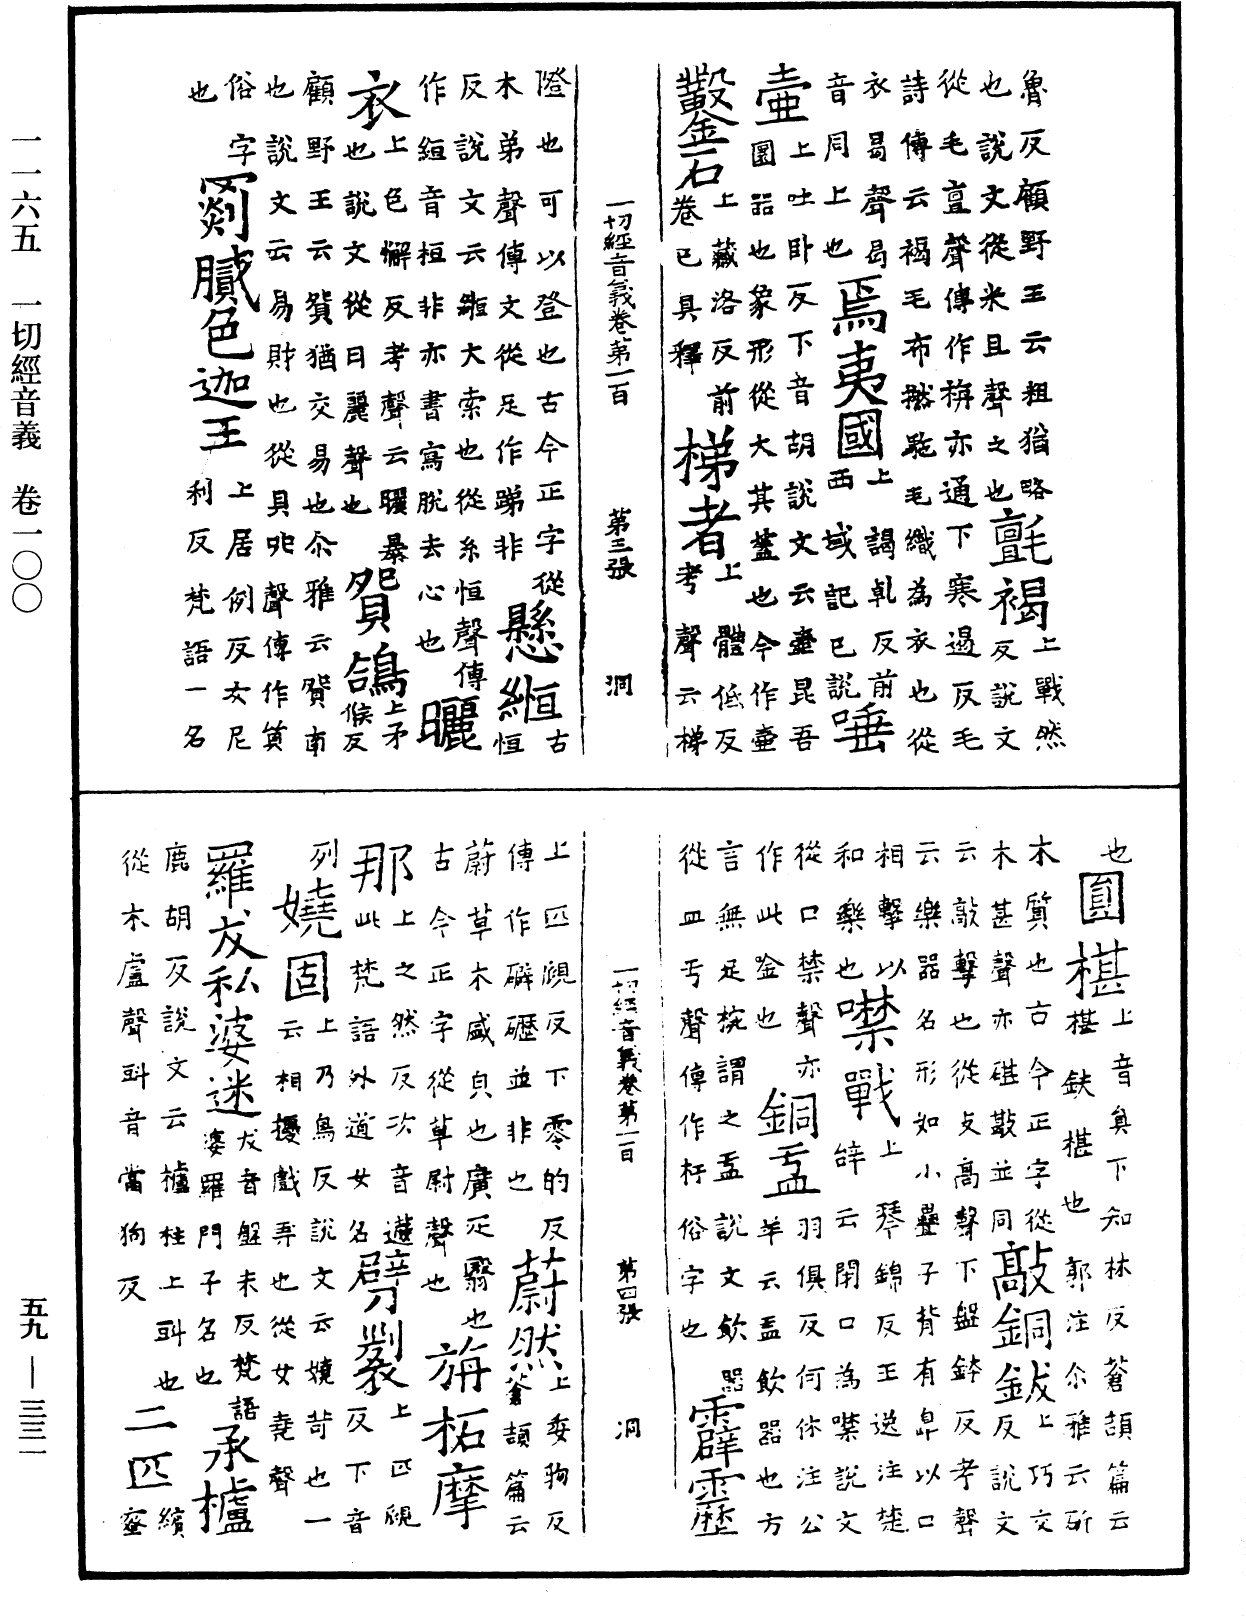 魯反顧野王云粗猶略
也說文從米且聲之也氈褐上戰然反說文
從毛亶聲傳作栴亦通下寒遏反毛
詩傳云褐毛布撚駞毛織為衣也從
衣曷聲曷音同上也焉夷國上謁乹反前西域記已說唾
壷上吐卧反下音胡說文云壷昆吾
圜器也象形從大其蓋也今作壷
鑿石上藏洛反前卷已具釋梯者上體低反考聲云梯
一切經音義卷第一百 第三張 洞
隥也可以登也古今正字從
木弟聲傳文從足作踶非懸緪古恒
反說文云緪大索也從糸恒聲傳
作絙音桓非亦書寫脫去心也曬
衣上色懈反考聲云曬暴也說文從日麗聲也貿鴿上矛候反
顧野王云貿猶交易也尒雅云貿南
也說文云易財也從貝丣聲傳作貿
俗字也罽膩色迦王上居例反女尼利反梵語一名
也圓椹上音負下知林反蒼頡篇云椹鈇椹也郭注尒雅云斫
木質也古今正字從木甚聲亦碪㪣並同敲銅鈸上巧交反說文
云敲擊也從攴高聲下盤鉢反考聲
云樂器名形如小疊子背有鼻以口
相擊以和樂也噤戰上琴錦反王逸注楚辝云閉口為噤說文
從口禁聲亦作此唫也銅盂羽俱反何休注公羊云盂飲器也方
言無足椀謂之盂說文飲器
從皿亏聲傳作杅俗字也霹靂
一切經音義卷第一百 第四張 洞
上匹覛反下零的反
傳作礔礰並非也蔚然上委狗反蒼頡篇云
蔚草木盛皃也廣疋翳也
古今正字從草尉聲也旃柘摩
那上之然反次音遮此梵語外道女名劈裂上匹覛反下音
列嬈固上乃鳥反說文云嬈苛也一云相擾戲弄也從女堯聲
羅犮私婆迷犮音盤末反梵語婆羅門子名也承櫨
鹿胡反說文云櫨柱上枓也從木盧聲枓音當狗反二匹繽蜜
一一六五 一切經音義 卷一〇〇
五九—三三一